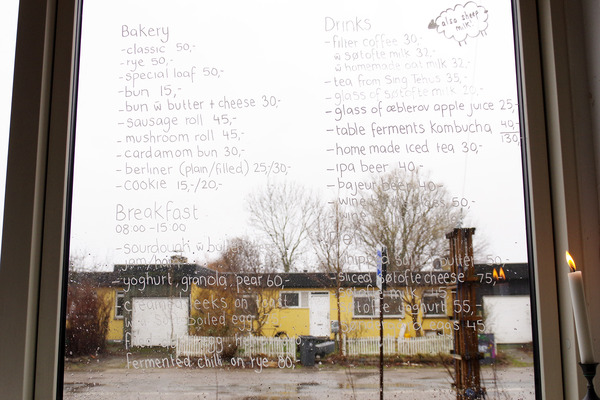 Bakery
- classic 50,-
- rye 50,-
- special loaf 50,-
- bun 15,-
- bun w̄ butter + cheese 30,-
- sausage roll 45,-
- mushroom roll 45,-
- cardamom bun 30,-
- berliner (plain/filled) 25/30,-
- cookie 15,-/20,-
Breakfast
08:00-15:00
- sourdough w̄
- yoghurt, granola, pear 60,-
leeks on
boiled egg
Fermented chilli on rye 80,-
Drinks
- filter coffee 30,-
w̄ søtofte milk 32,-
w̄ homemade oat milk 32,-
- tea from Sing Tehus 35,-
- glass of søtofte milk 20,-
- glass of æblerov apple juice 25,-
- table ferments kombucha 40,-
130,-
- home made iced tea 30,-
- ipa beer 40,-
- bajeur beer 40,-
- wine 50,-
butter 50,-
- sliced søtofte cheese 75,-
yoghurt
eggs 45,-
also sheep milk!